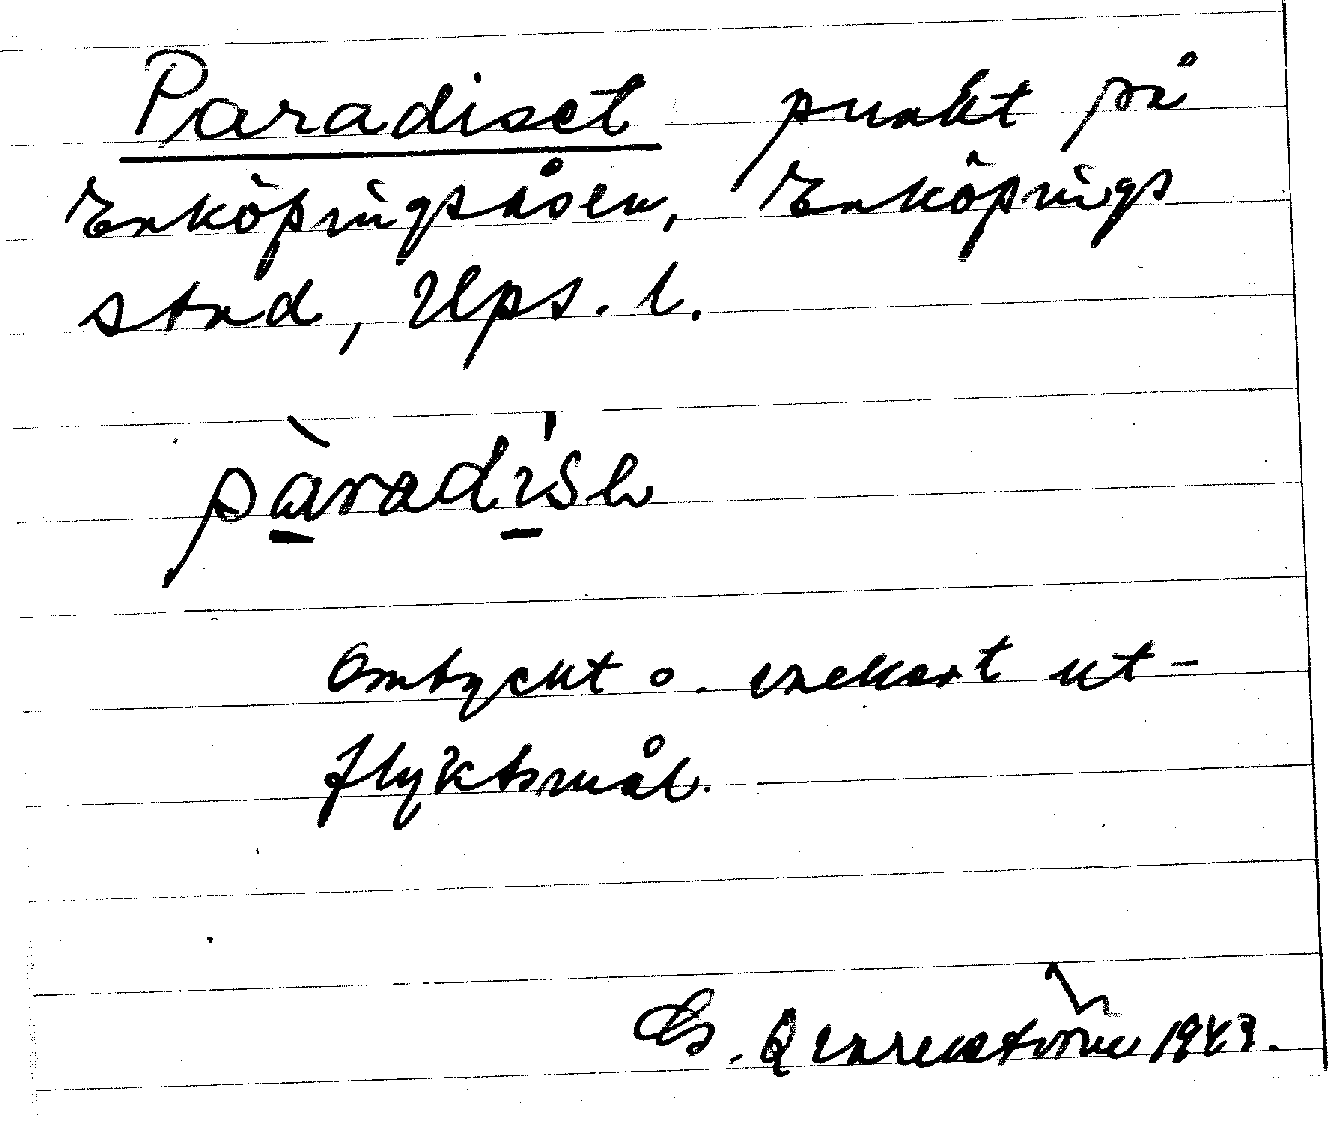 Paradiset punkt på
Enköpingsåsen, Enköpings
stad, Ups. l.
pàradísₑ
Omtyckt o. vackert ut-
flyktsmål.
1943.